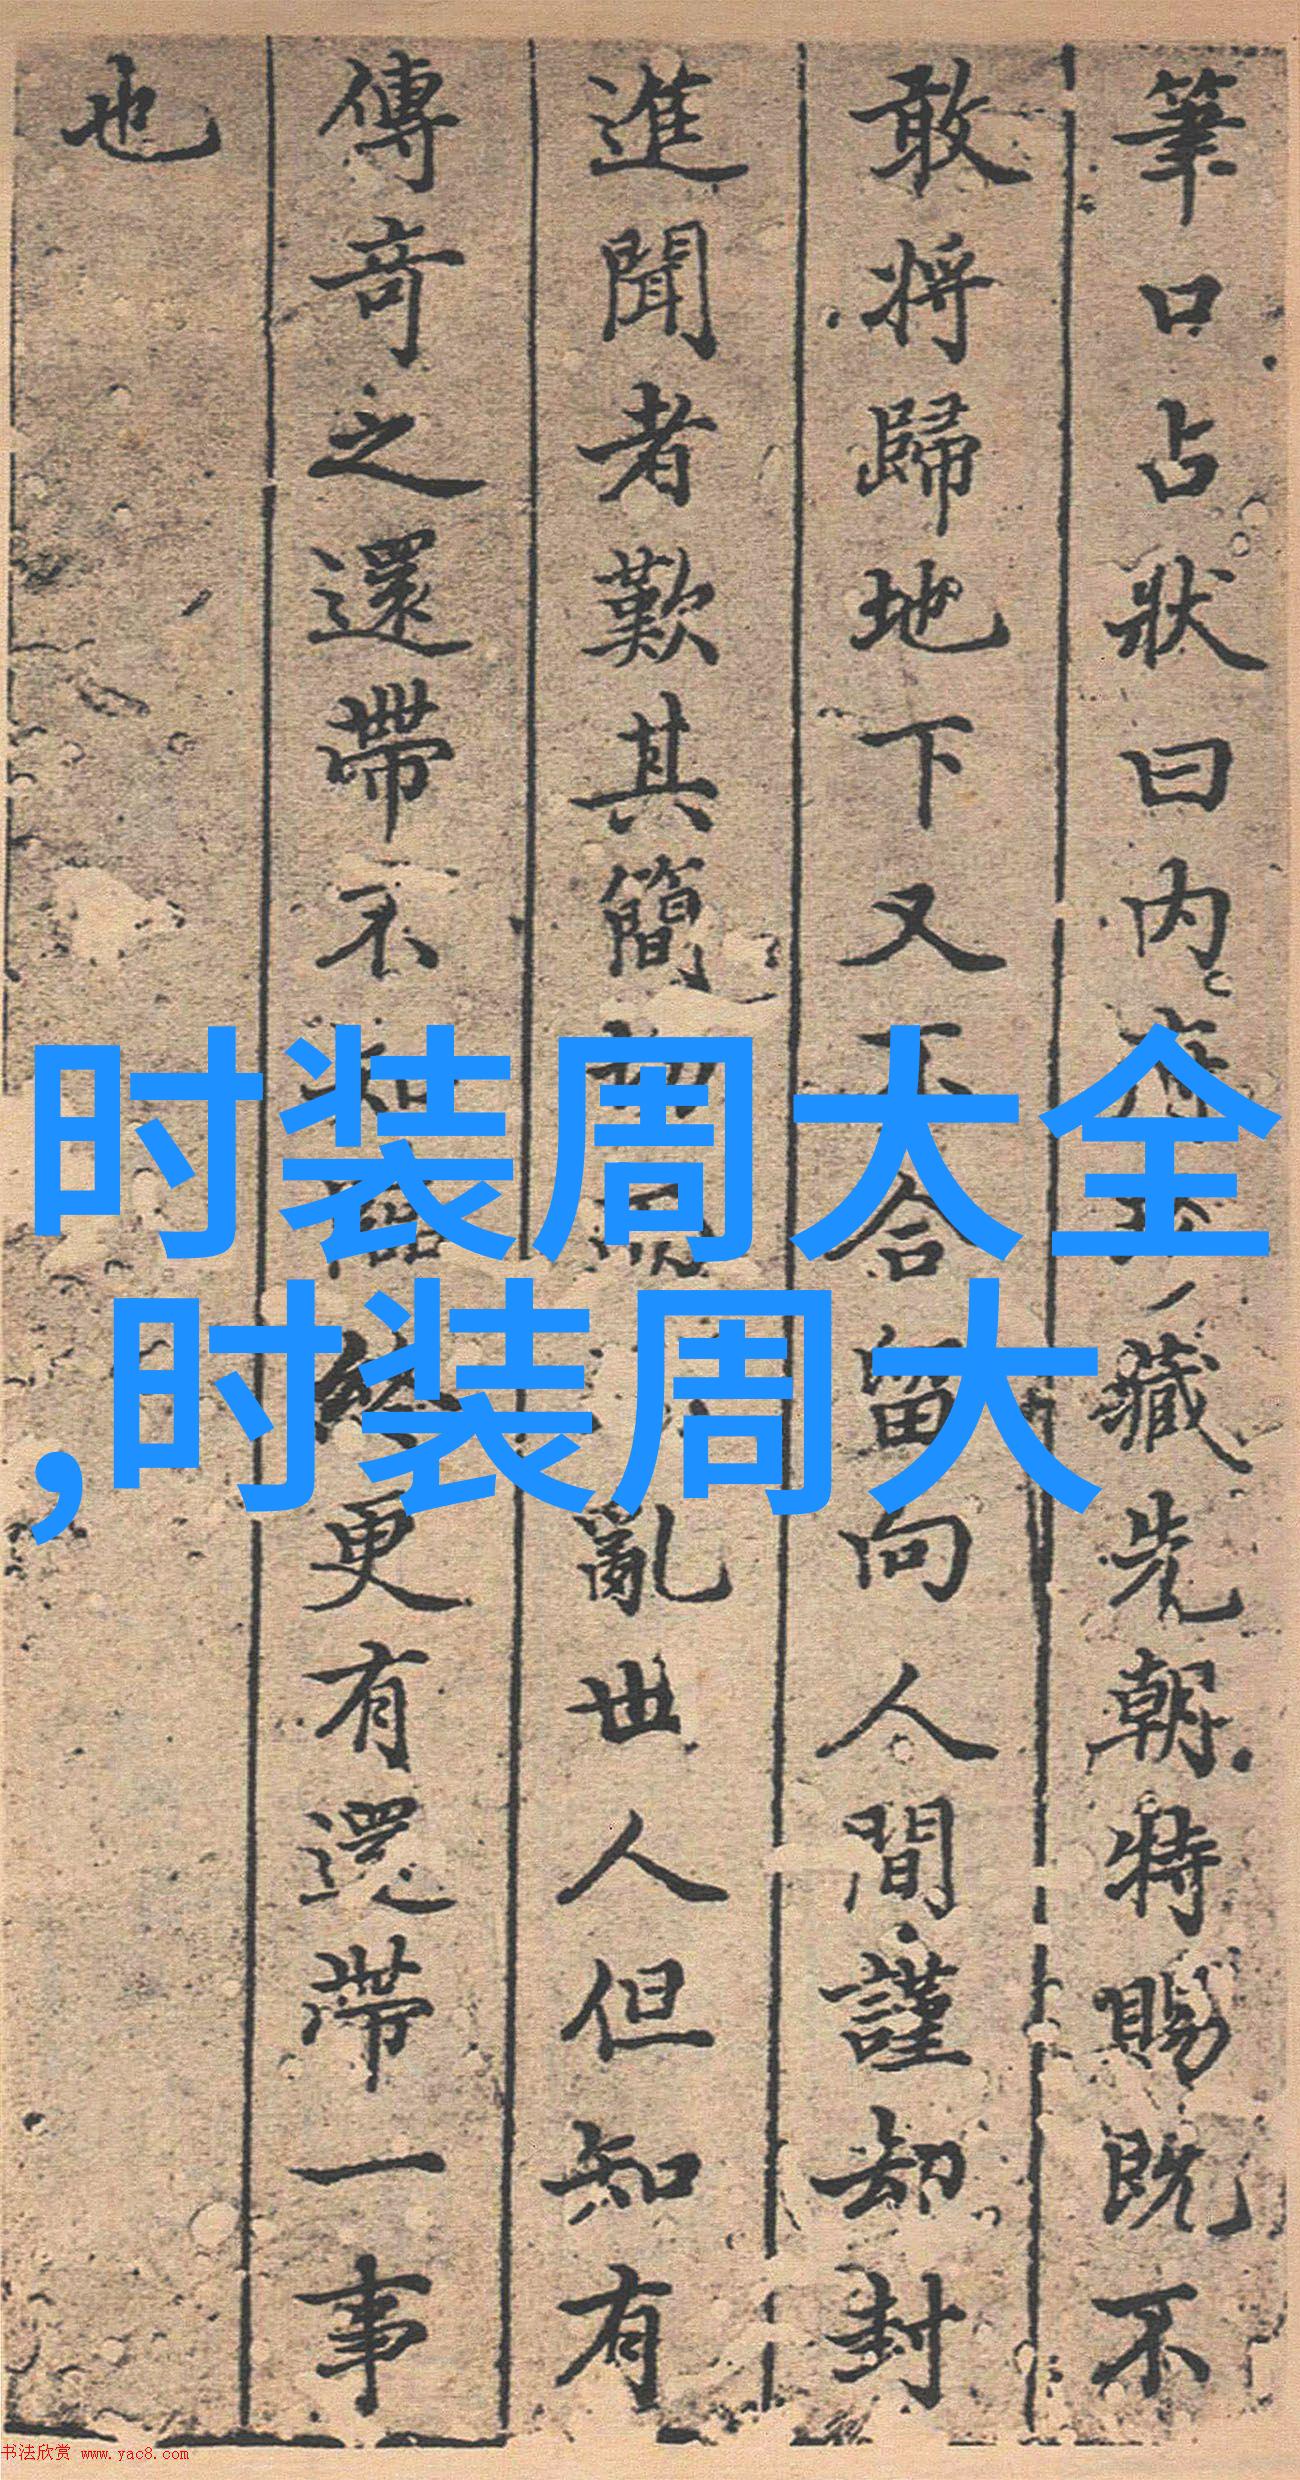 筆口占狀曰内藏先朝特賜既不
敢将歸地下又不合留向人間謹却封
進聞者歎其簡亂世人但知有
傳奇之還帶不知更有還帶一事
也
时装周大全
,时装周大
书法欣赏 www.yac8.com